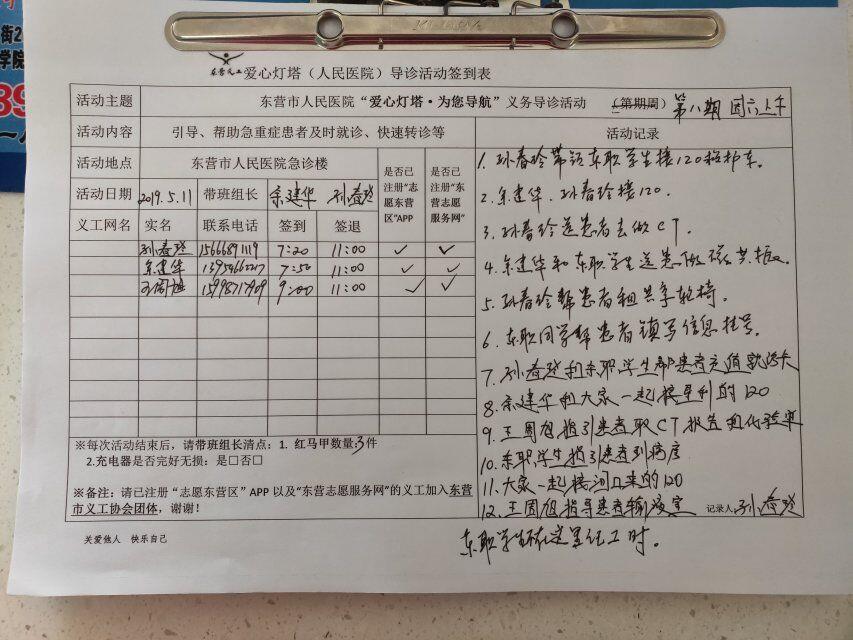 街2
学院
89
东营义工 爱心灯塔（人民医院）导诊活动签到表
活动主题 东营市人民医院“爱心灯塔·为您导航”义务导诊活动 （第期周） 第八期 周六上午
活动内容 引导、帮助急重症患者及时就诊、快速转诊等 活动记录
活动地点 东营市人民医院急诊楼 是否已注册“志愿东营区”APP 是否已注册“东营志愿服务网”
活动日期 2019.5.11 带班组长 宗建华 孙春玲
义工网名 实名 联系电话 签到 签退
孙春玲 15666891119 7:20 11:00 ✓ ✓
宗建华 7:50 11:00 ✓ ✓
王周旭 15998717909 9:00 11:00 ✓ ✓
1. 孙春玲带领东职学生接120救护车.
2. 宗建华.孙春玲接120.
3. 孙春玲送患者去做CT.
4. 宗建华和东职学生送患做磁共振.
5. 孙春玲帮患者租共享轮椅.
6. 东职同学帮患者填写信息挂号.
7. 孙春玲和东职学生帮患者充值就诊卡
8. 宗建华和大家一起接垦利的120
9. 王周旭指引患者取CT报告和化验单
10. 东职学生指引患者到病房
11. 大家一起接河口来的120
12. 王周旭指导患者输液室 记录人 孙春玲
※每次活动结束后，请带班组长清点：1. 红马甲数量3件
2.充电器是否完好无损：是□否□
※备注：请已注册“志愿东营区”APP 以及“东营志愿服务网”的义工加入东营
市义工协会团体，谢谢！
关爱他人 快乐自己
东职学生不在这里记工时.